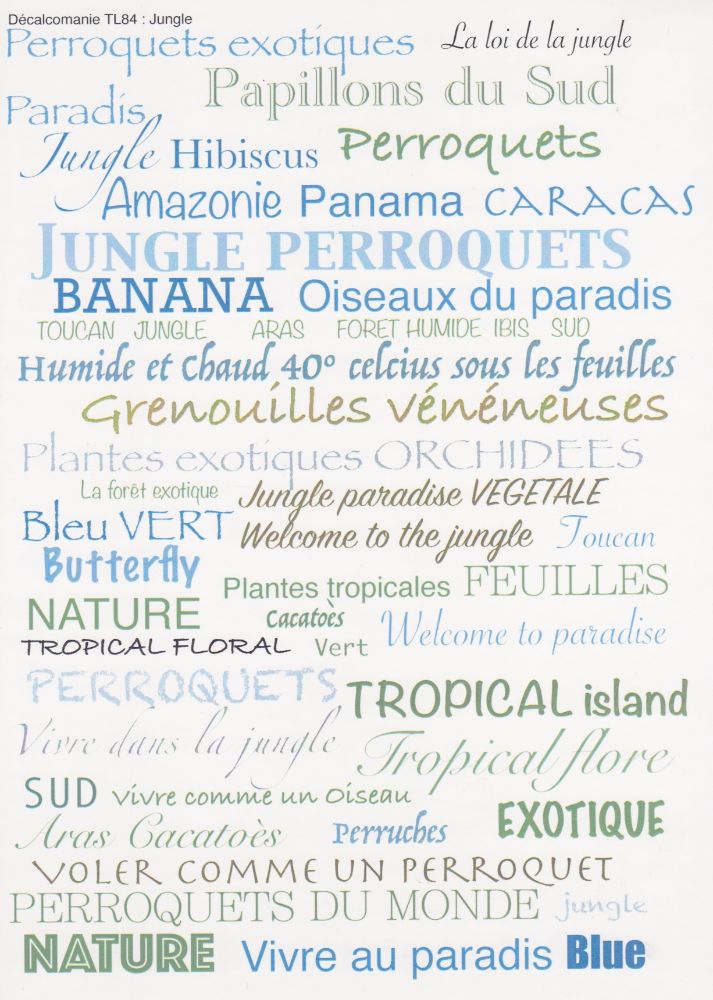 Décalcomanie TL84 : Jungle
Perroquets exotiques La loi de la jungle
Papillons du Sud
Paradis
Jungle Hibiscus Perroquets
Amazonie Panama CARACAS
JUNGLE PERROQUETS
BANANA Oiseaux du paradis
TOUCAN JUNGLE ARAS FORET HUMIDE IBIS SUD
Humide et Chaud 40° celcius sous les feuilles
Grenouilles vénéneuses
Plantes exotiques ORCHIDEES
La forêt exotique Jungle paradise VEGETALE
Bleu VERT Welcome to the jungle Toucan
Butterfly
Plantes tropicales FEUILLES
NATURE Cacatoès Welcome to paradise
TROPICAL FLORAL Vert
PERROQUETS TROPICAL island
Vivre dans la jungle Tropical flore
SUD Vivre comme un Oiseau
Aras Cacatoès Perruches EXOTIQUE
VOLER COMME UN PERROQUET
PERROQUETS DU MONDE jungle
NATURE Vivre au paradis Blue